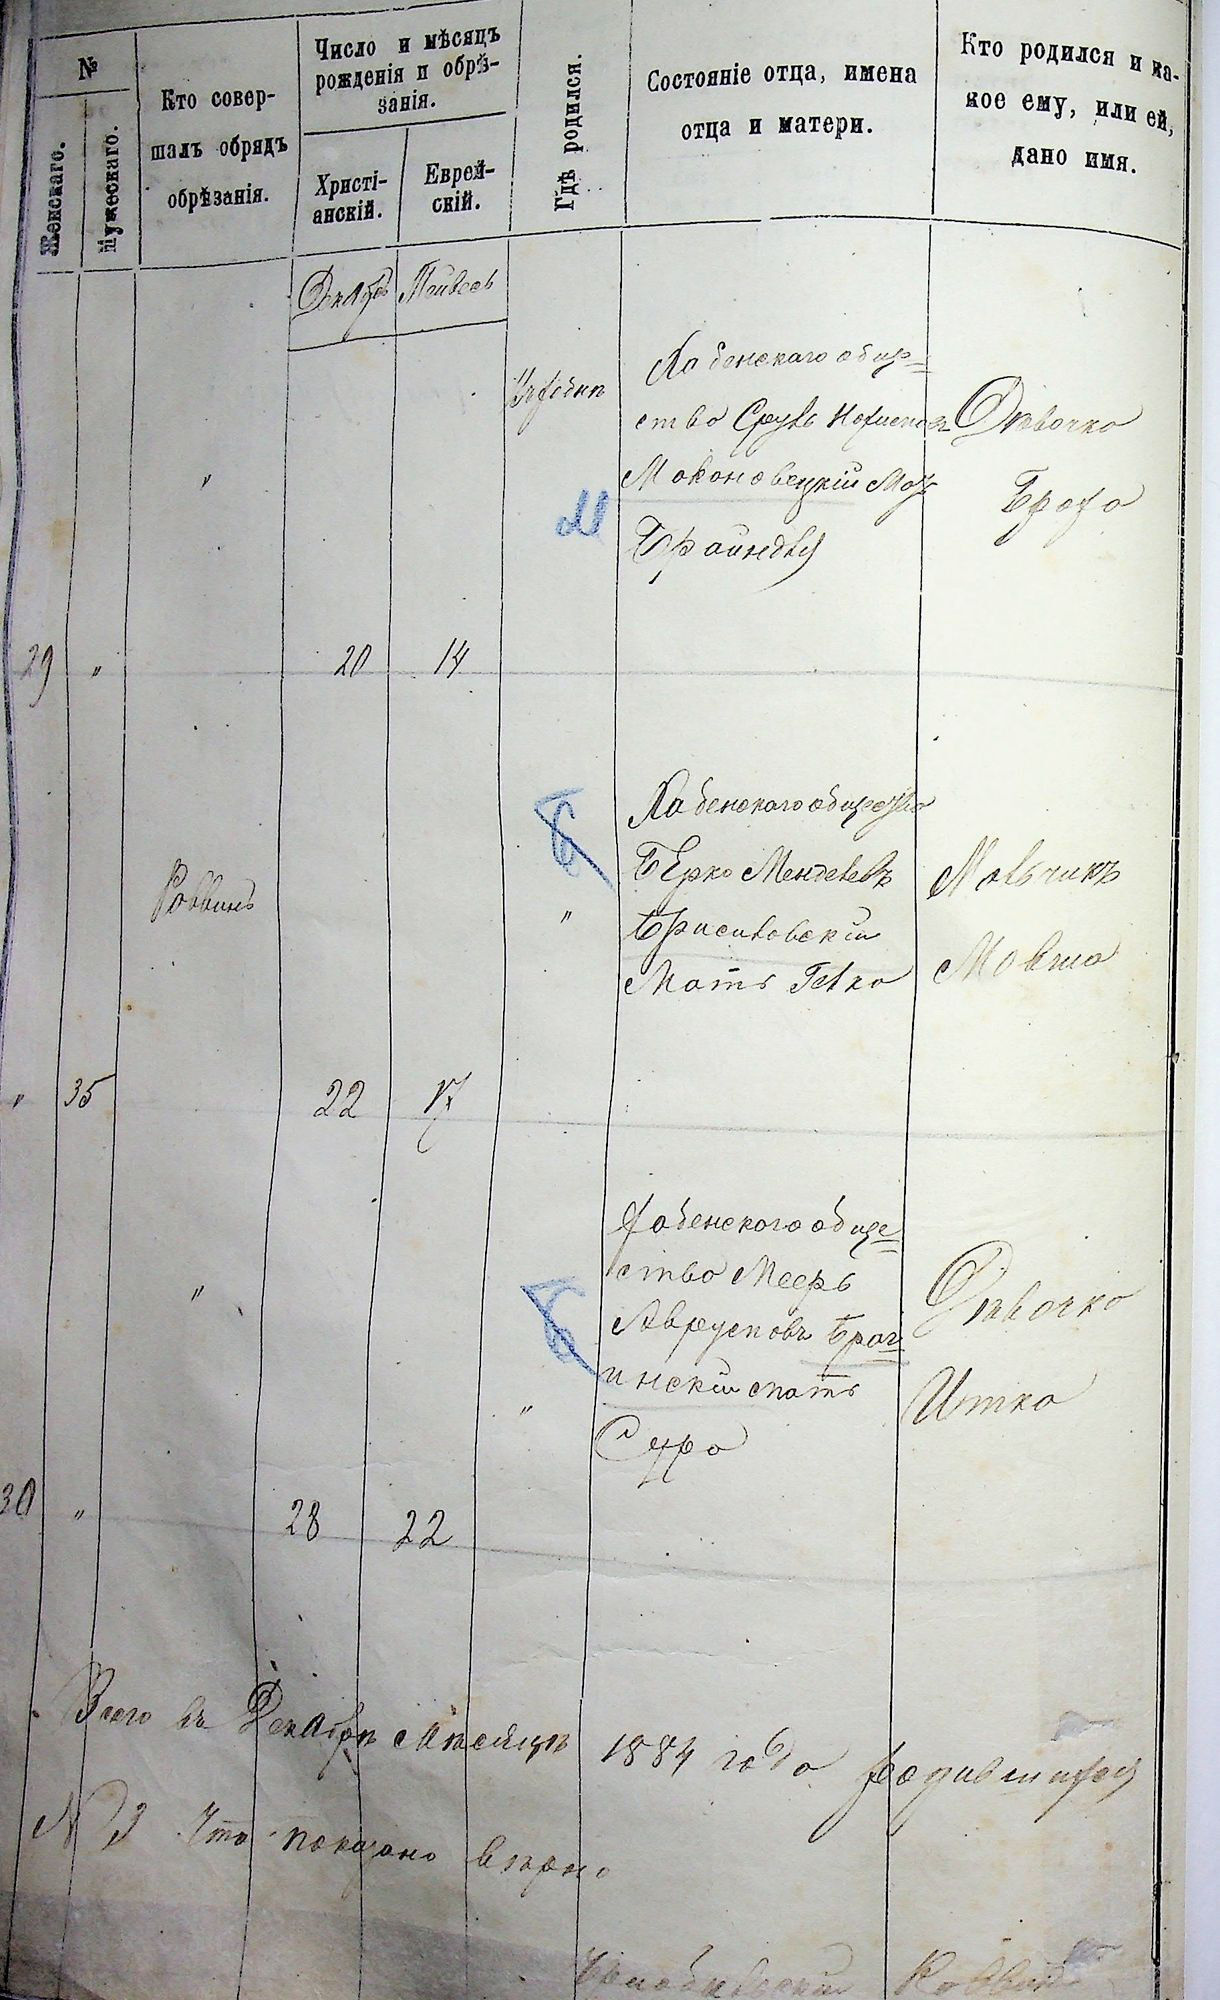 №
Женскаго.
Мужескаго.
Кто совер-
шалъ обрядъ
обрѣзанія.
Число и мѣсяцъ
рожденія и обрѣ-
занія.
Христі-
анскій.
Еврей-
скій.
Гдѣ родился.
Состояніе отца, имена
отца и матери.
Кто родился и ка-
кое ему, или ей,
дано имя.
Декабрь
Тейвесь
29
"
"
20
14
М
Хабенскаго обще=
ство Сруль
Макановецкій Мать
Браиндля
Девочка
Броха
"
35
Раввинъ
22
17
"
Б
Хабенскаго общества
Берко Менделевъ
Мать Гелка
Мальчикъ
Мовша
30
"
"
28
22
"
Б
Хабенского обще=
ство Мееръ
Браг=
инскій мать
Сура
Девочка
Итка
Всего въ Декабрѣ мѣсяцѣ 1884 года родившихся
№ 3 Что показано вѣрно
Раввинъ